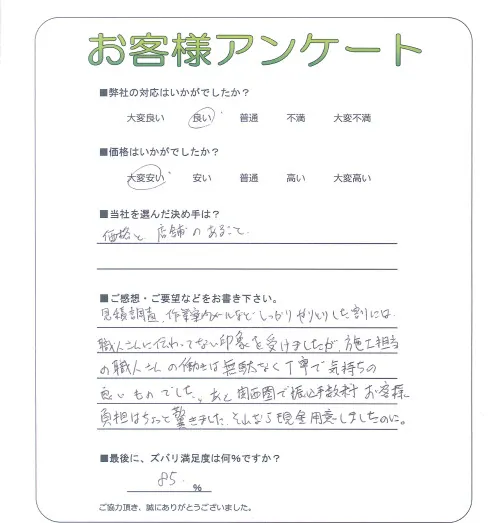 お客様アンケート
■弊社の対応はいかがでしたか？
大変良い 良い 普通 不満 大変不満
■価格はいかがでしたか？
大変安い 安い 普通 高い 大変高い
■当社を選んだ決め手は？
価格と 店舗のあること
■ご感想・ご要望などをお書き下さい。
見積調査、作業案内メールなど しっかりやりとりした割には
職人さんに伝わってない印象を受けましたが、施工担当
の職人さんの働きは無駄なく丁寧で気持ちの
良いものでした。あと関西圏で振込手数料お客様
負担はちょっと驚きました。そんなら現金用意しましたのに。
■最後に、ズバリ満足度は何％ですか？
85. ％
ご協力頂き、誠にありがとうございました。